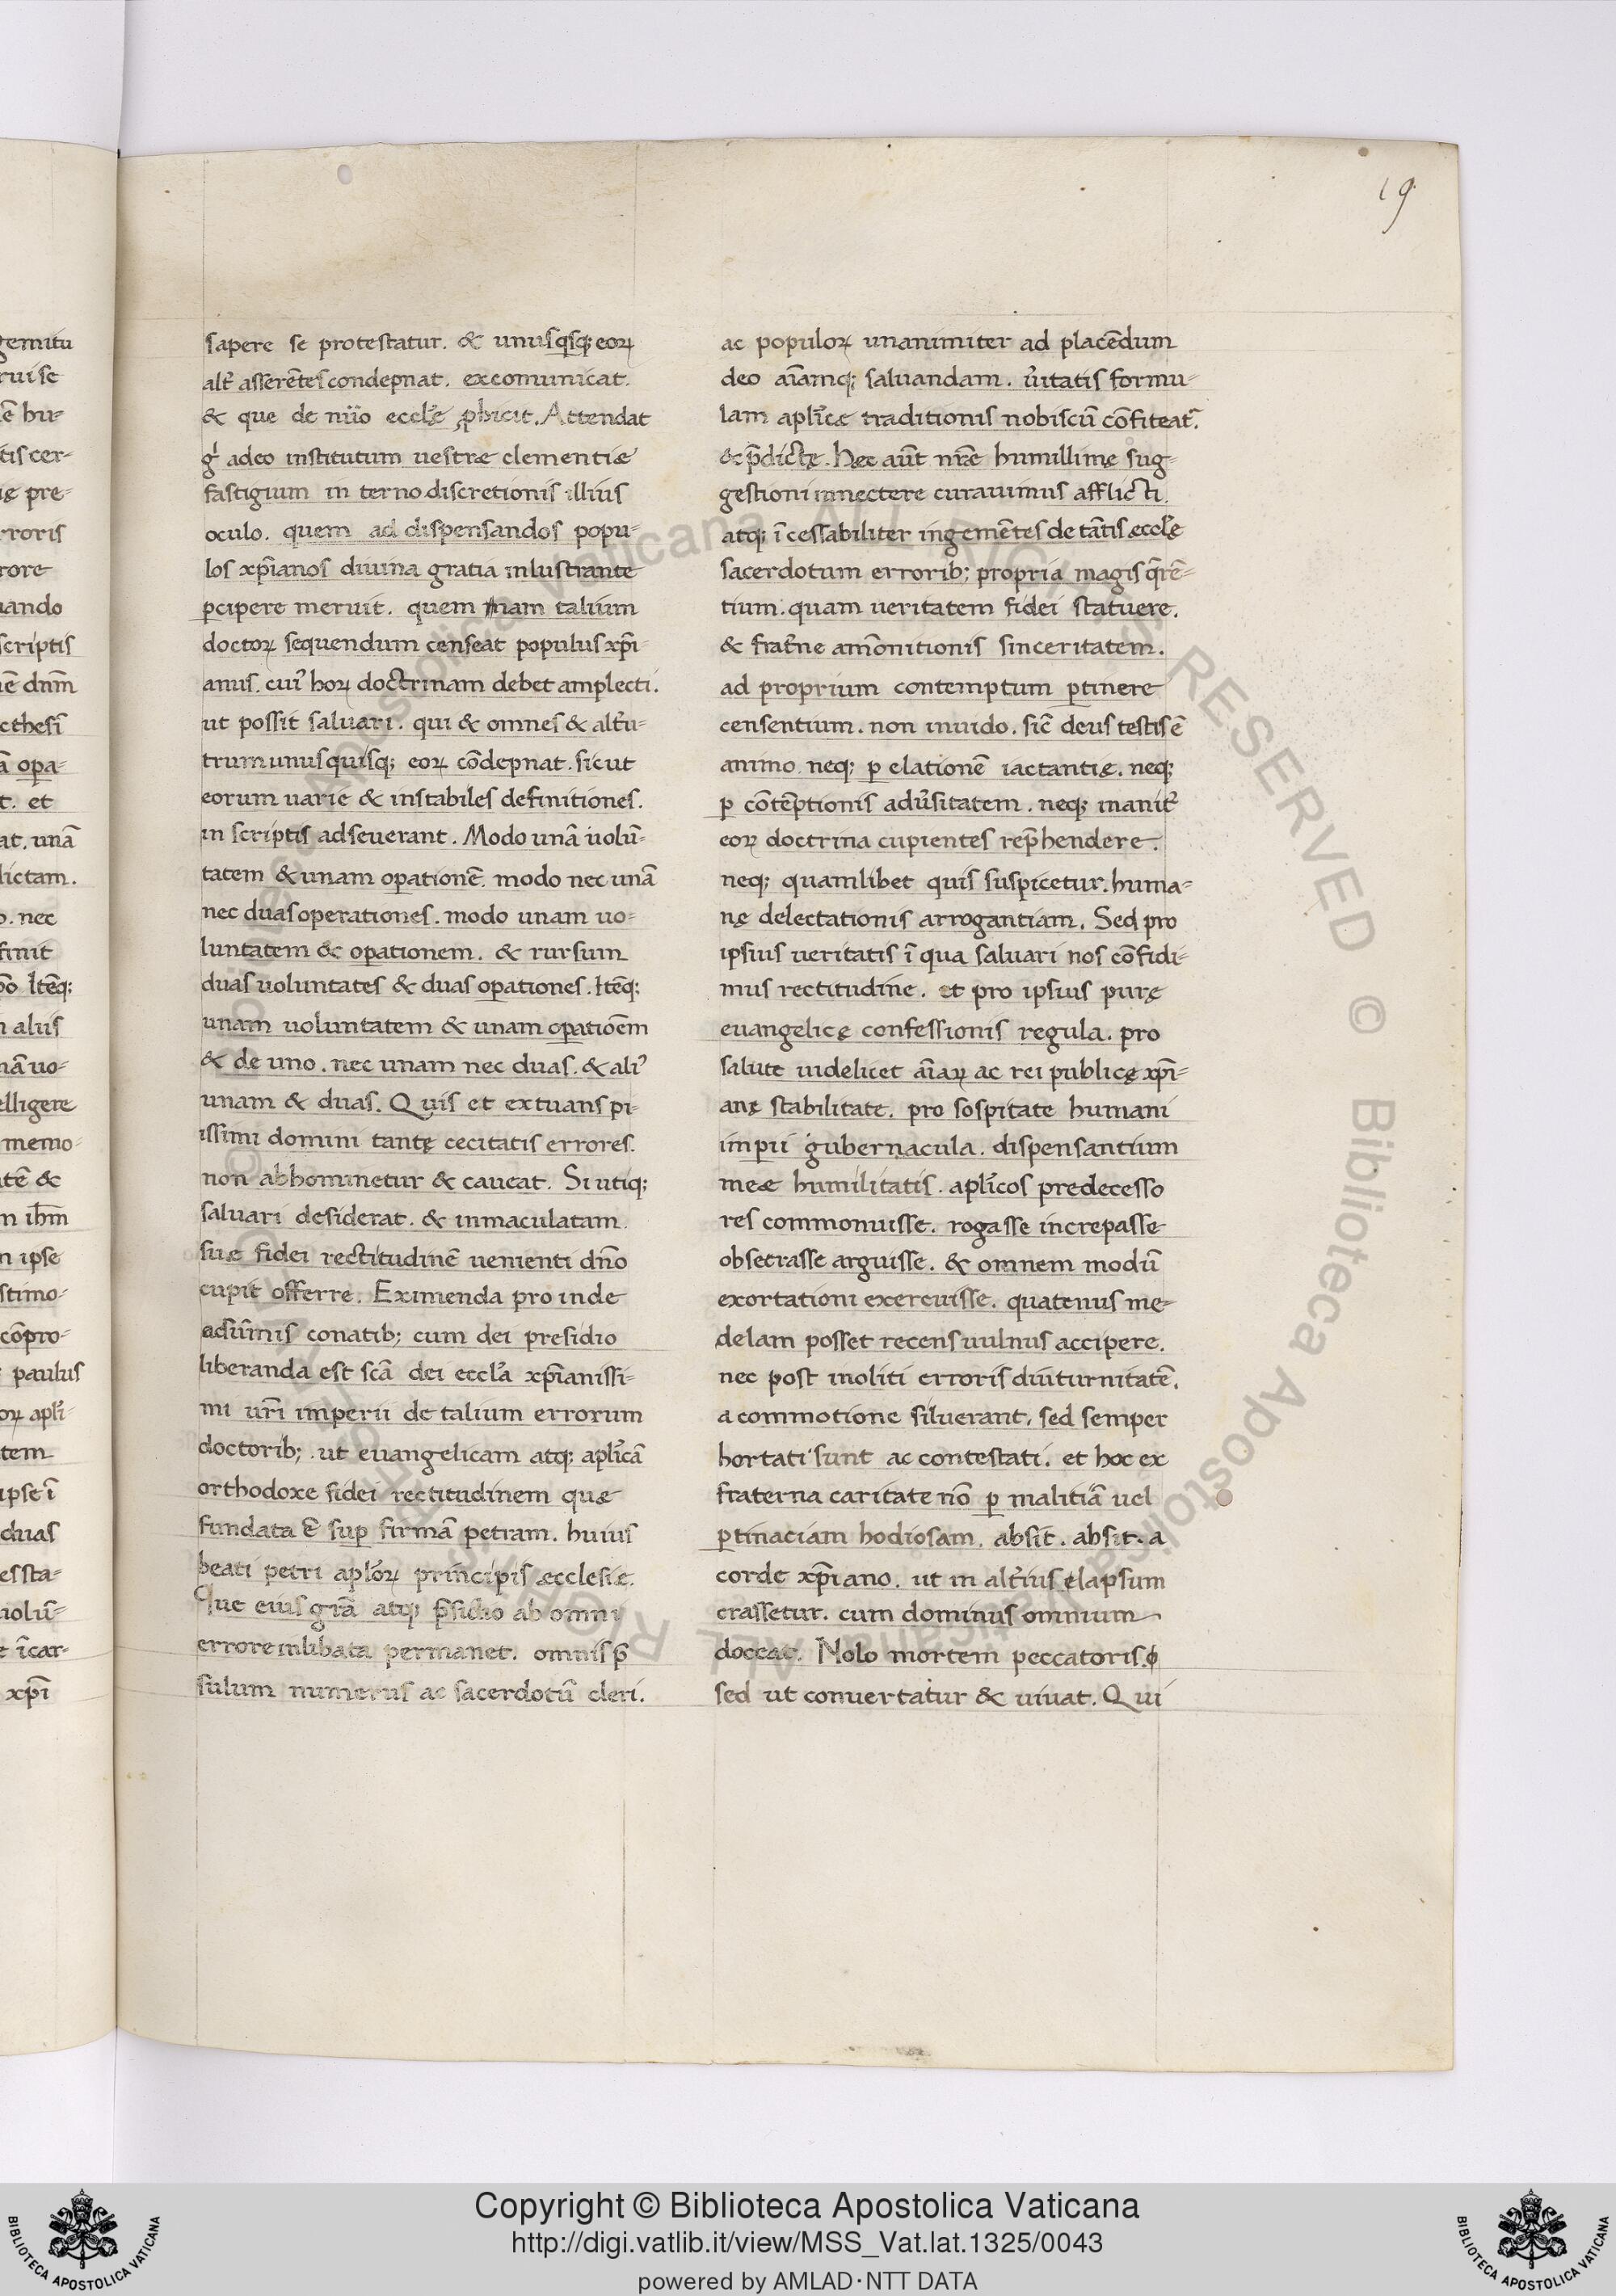 19
sapere se protestatur. & unusqsq; eoꝝ
alt̃ asserẽtes condepnat. excomunicat.
& que de niio eccl̃ę ꝓhicit. Attendat
g̃ adeo institutum uestræ clementiæ
fastigium in terno discretionis illius
oculo. quem ad dispensandos popu-
los xp̃ianos diuina gratia inlustrante
ꝑcipere meruit. quem nam talium
doctoꝝ sequendum censeat populus xp̃i-
anus. cui' hoꝝ doctrinam debet amplecti.
ut possit saluari. qui & omnes & alt̃u-
trum unusquisq; eoꝝ cõdepnat. sicut
eorum uarie & instabiles definitiones.
in scriptis adseuerant. Modo unã uolũ-
tatem & unam oꝑationẽ. modo nec unã
nec duas operationes. modo unam uo-
luntatem & oꝑationem. & rursum
duas uoluntates & duas oꝑationes. Itẽq;
unam uoluntatem & unam oꝑatiõem
& de uno. nec unam nec duas. & ali'
unam & duas. Quis et extuans pi-
issimi domini tantę cecitatis errores.
non abhominetur & caueat. Si utiq;
saluari desiderat. & inmaculatam
suæ fidei rectitudinẽ uenienti dño
cupit offerre. Eximenda pro inde
adsũmis conatib; cum dei presidio
liberanda est scã dei eccl̃a xp̃ianissi-
mi ur̃i imperii de talium errorum
doctorib; ut euangelicam atq; apl̃icã
orthodoxe fidei rectitudinem quæ
fundata ẽ suꝑ firmã petram. huius
beati petri apl̃oꝝ principis æcclesiæ.
Que eius gr̃a atq; p̃sidio ab omni
errore inlibata permanet. omnis p̃
sulum numerus ac sacerdotũ cleri.
ac populoꝝ unanimiter ad placẽdum
deo aĩamq; saluandam. ũitatis formu-
lam apl̃icæ traditionis nobiscũ cõfiteat̃.
& p̃dictę. Hęc aut̃ nr̃æ humillimę sug-
gestioni innectere curauimus afflicti.
atq; ĩcessabiliter ingemẽtes de tãtis æccl̃ę
sacerdotum errorib; propria magis q̃rẽ-
tium. quam ueritatem fidei statuere.
& frat̃ne amõnitionis sinceritatem.
ad proprium contemptum ꝑtinere
censentium. non inuido. sic̃ deus testis ẽ
animo. neq; ꝑ elationẽ iactantię. neq;
ꝑ cõtẽptionis adũsitatem. neq; inanit̃
eoꝝ doctrina cupientes rep̃hendere.
neq; quamlibet quis suspicetur. huma-
nę delectationis arrogantiam. Sed pro
ipsius ueritatis ĩ qua saluari nos cõfidi-
mus rectitudine. et pro ipsius purę
euangelicę confessionis regula. pro
salute uidelicet aĩaꝝ ac rei publicę xp̃i-
anę stabilitate. pro sospitate humani
imꝑii gubernacula. dispensantium
meæ humilitatis. apl̃icos predecesso
res commonuisse. rogasse increpasse
obsecrasse arguisse. & omnem modũ
exortationi exercuisse. quatenus me-
delam posset recens uulnus accipere.
nec post inoliti erroris diuturnitatẽ.
a commotione siluerant. sed semper
hortati sunt ac contestati. et hoc ex
fraterna caritate nõ ꝑ malitiã uel
ꝑtinaciam hodiosam. absit. absit. a
corde xp̃iano. ut in alt̃ius elapsum
crassetur. cum dominus omnium
doceat. Nolo mortem peccatoris.
sed ut conuertatur & uiuat. Qui
Copyright © Biblioteca Apostolica Vaticana
http://digi.vatlib.it/view/MSS_Vat.lat.1325/0043
powered by AMLAD·NTT DATA